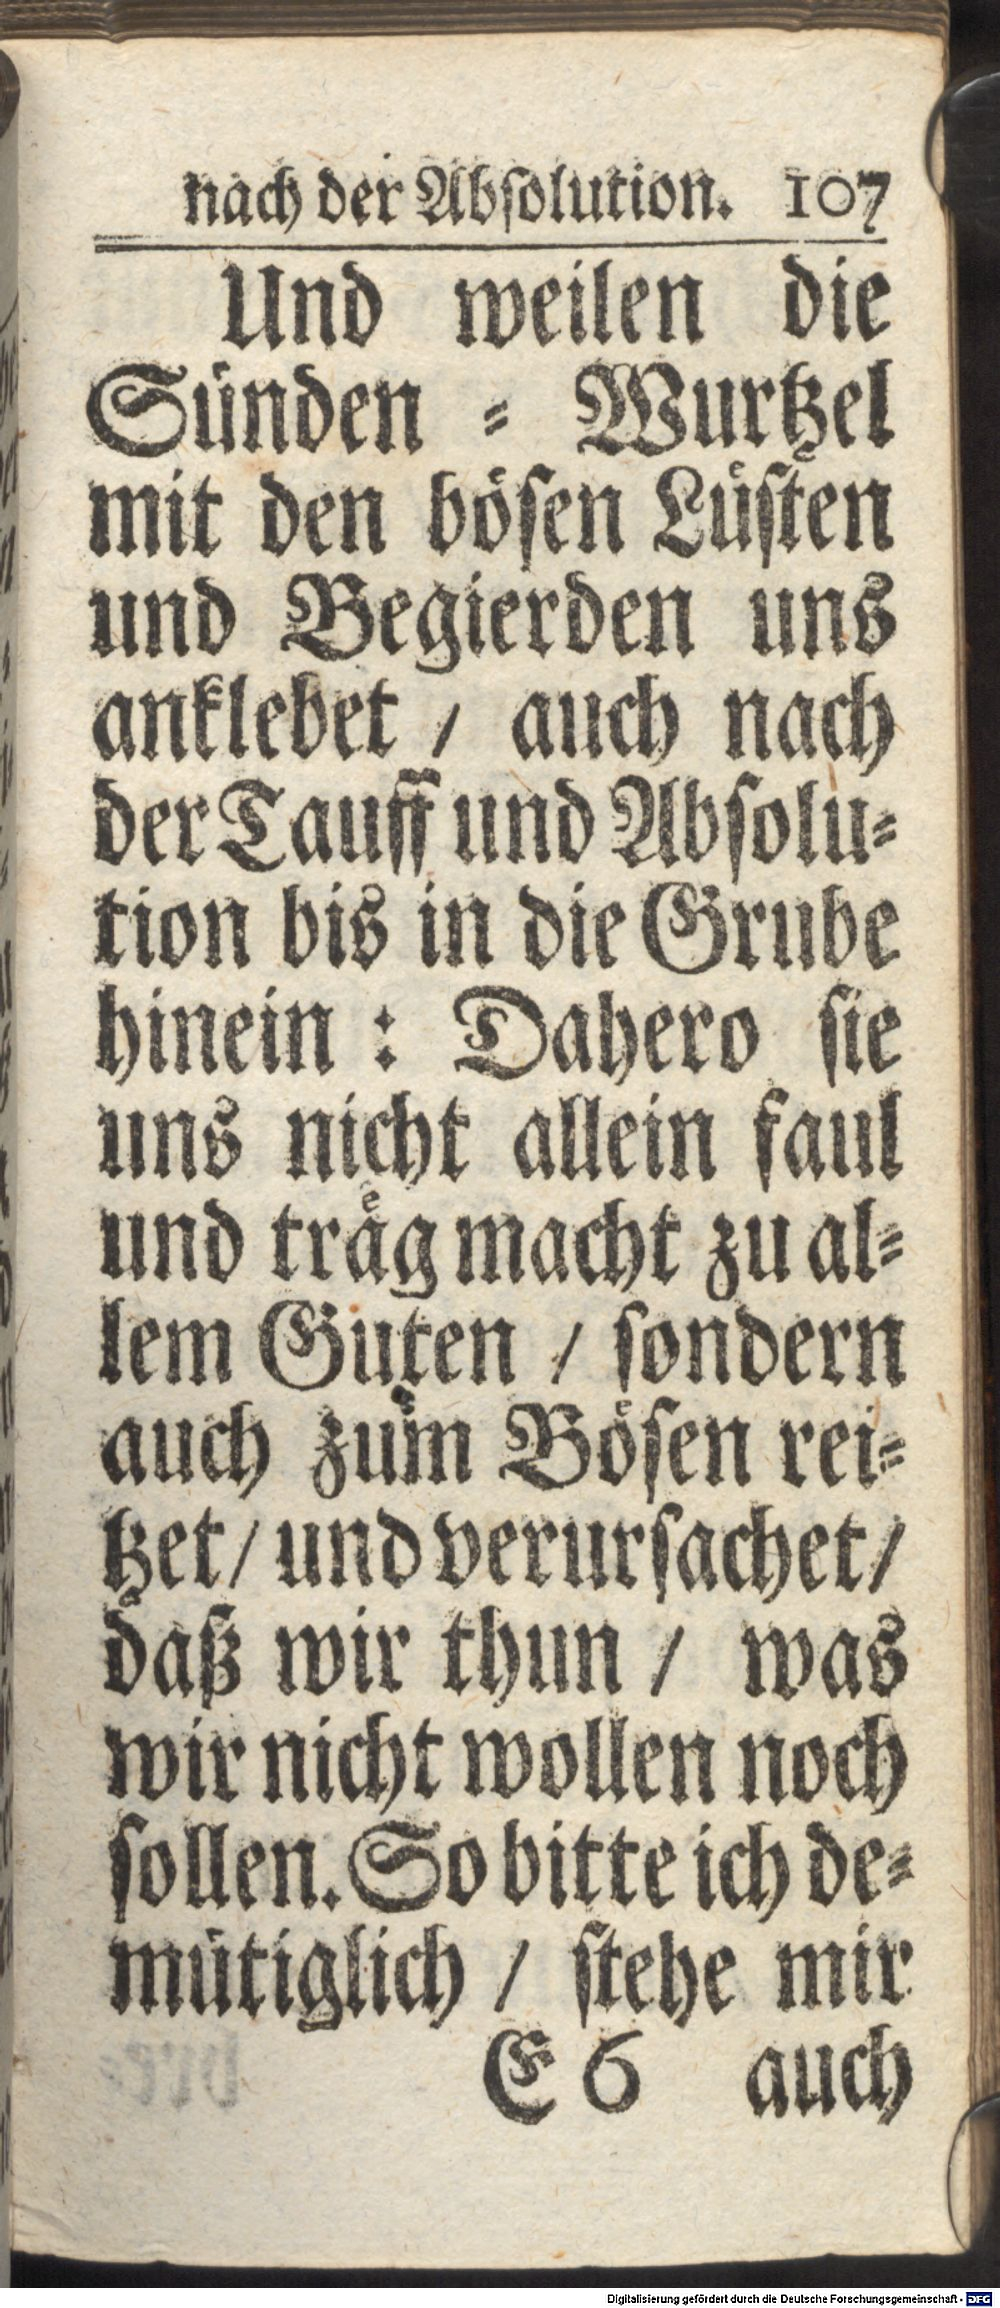 nach der Absolution. 107
Und weilen die
Sünden = Wurtzel
mit den bösen Lüsten
und Begierden uns
anklebet / auch nach
der Tauff und Absolu=
tion bis in die Grube
hinein : Dahero sie
uns nicht allein faul
und träg macht zu al=
lem Guten / sondern
auch zum Bösen rei=
tzet / und verursachet /
daß wir thun / was
wir nicht wollen noch
sollen. So bitte ich de=
mütiglich / stehe mir
E 6 auch
Digitalisierung gefördert durch die Deutsche Forschungsgemeinschaft - DFG